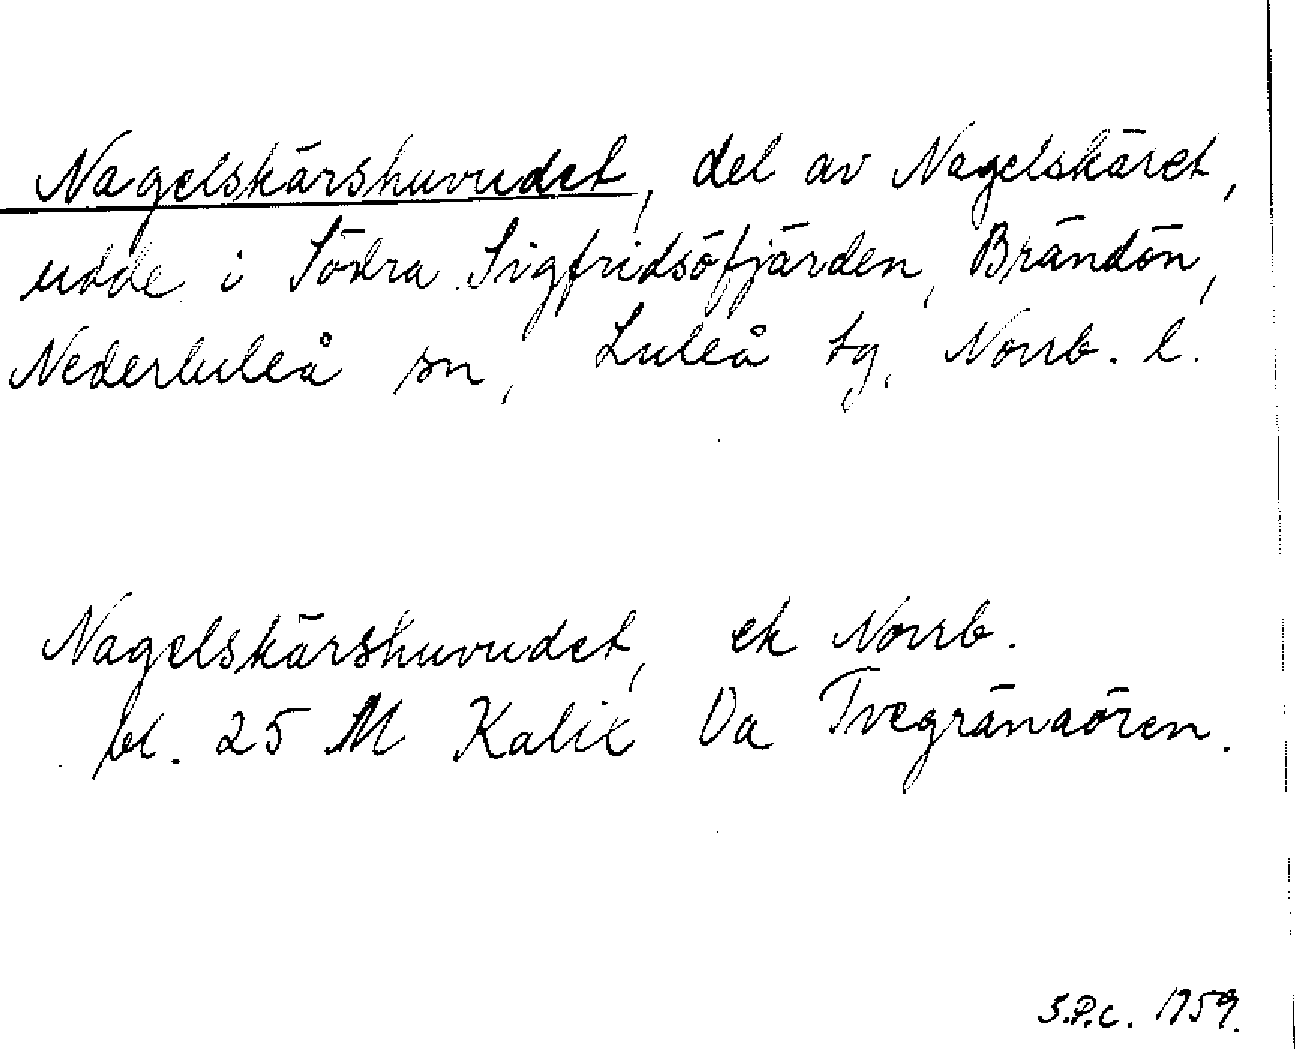 Nagelskärshuvudet, del av Nagelskäret,
udde i Södra Sigfridsöfjärden, Brändön,
Nederluleå sn, Luleå tg, Norrb. l.
Nagelskärshuvudet, ek Norrb.
bl. 25 M Kalix Va Tvegränaören.
S.P.C. 1959.